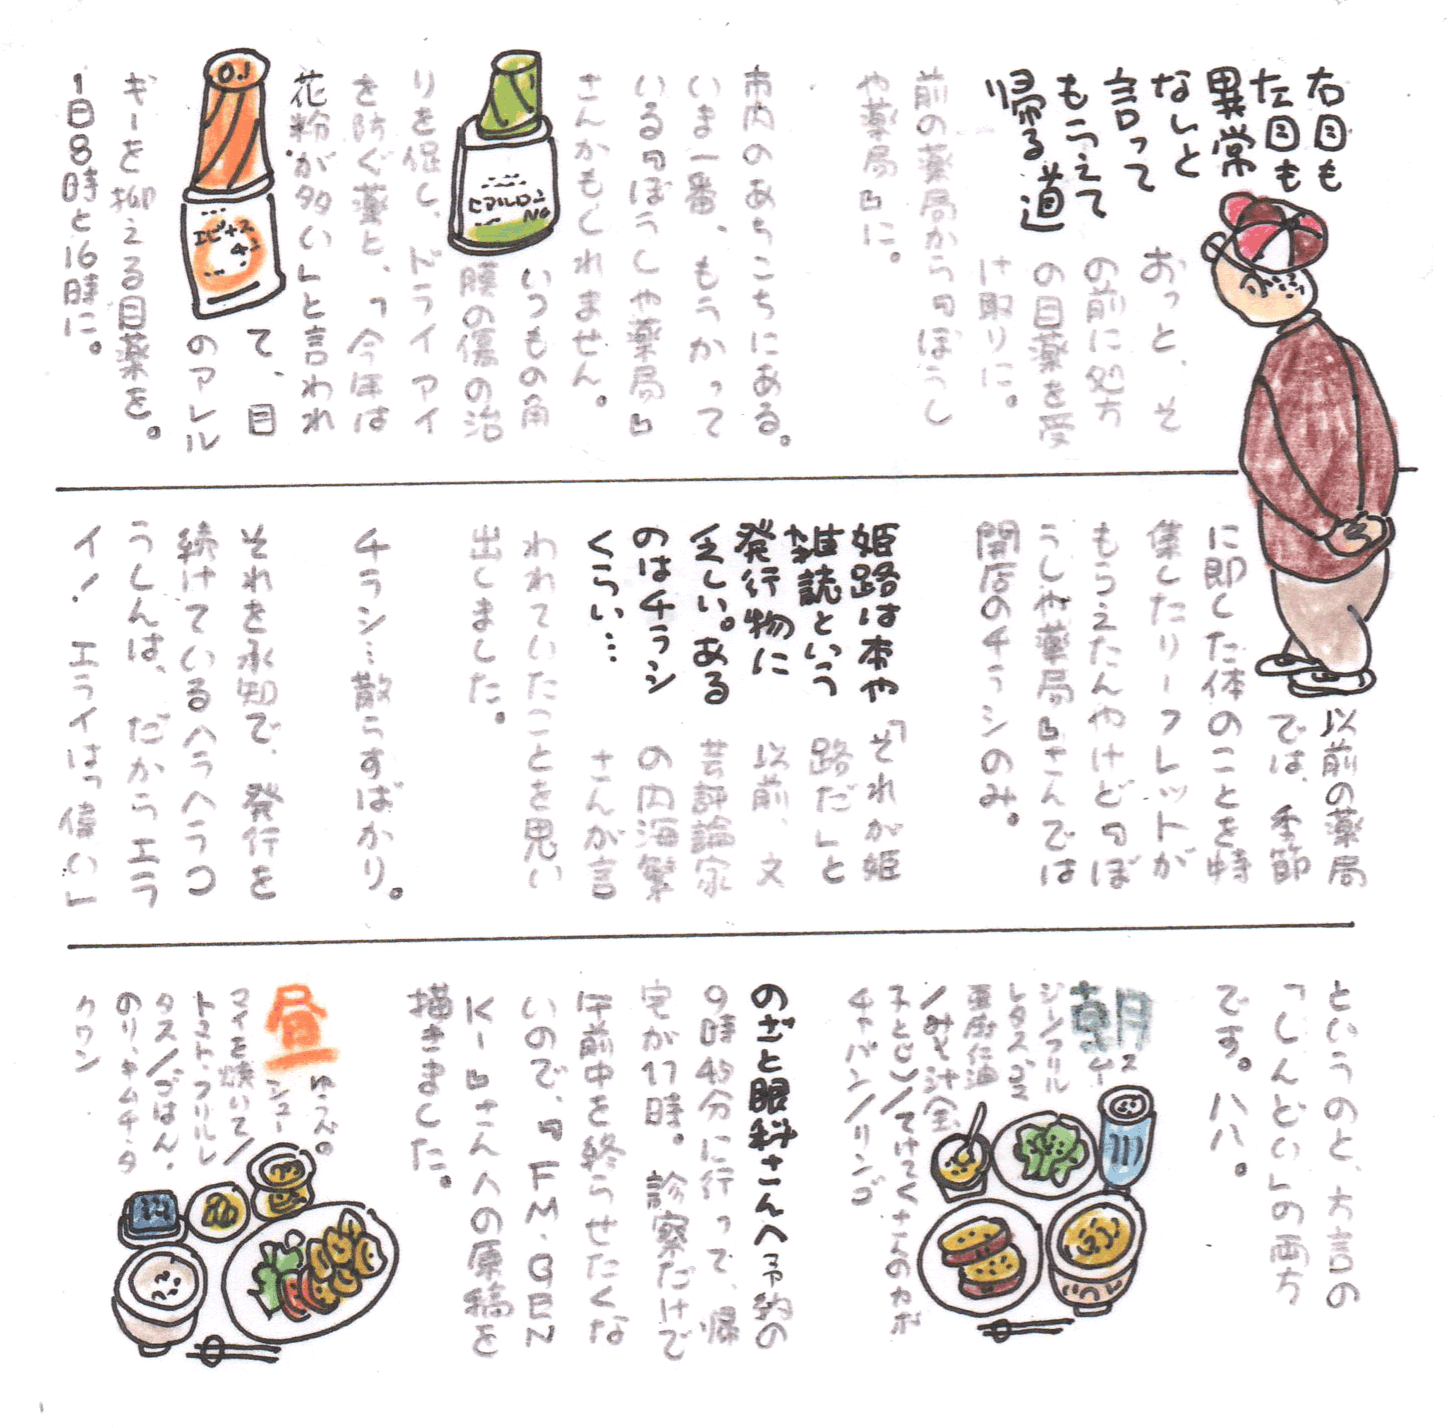 右目も
左目も
異常
なしと
言って
もらえて
帰る道
おっと、そ
の前に処方
の目薬を受
け取りに。
前の薬局から『ぼうし
や薬局』に。
市内のあちこちにある。
いま一番、もうかって
いる『ぼうしや薬局』
さんかもしれません。
いつもの角
膜の傷の治
りを促し、ドライアイ
を防ぐ薬と、「今年は
花粉が多い」と言われ
て、目
のアレル
ギーを抑える目薬を。
1日8時と16時に。
ヒアルロン
NG
0.1
エピナス
チン
以前の薬局
では、季節
に即した体のことを特
集したリーフレットが
もらえたんやけど『ぼ
うしや薬局』さんでは
開店のチラシのみ。
姫路は本や
雑誌という
発行物に
乏しい。ある
のはチラシ
くらい…
「それが姫
路だ」と
以前、文
芸評論家
の内海繁
さんが言
われていたことを思い
出しました。
チラシ…散らすばかり。
それを承知で、発行を
続けているヘラヘラつ
うしんは、だからエラ
イ！エライは「偉い」
というのと、方言の
「しんどい」の両方
です。ハハ。
朝
ジーンフリル
レタス、ゴマ
亜麻仁油
／みそ汁（全
子とじ）／てけてくさえのカボ
チャパン／リンゴ
のざと眼科さんへ予約の
9時45分に行って、帰
宅が11時。診察だけで
午前中を終らせたくな
いので、『FM・GEN
KI』さんへの原稿を
描きました。
昼
ゆうべ。
シュー
マイを焼いて／
トマト、フリルレ
タス／ごはん・
のり、キムチ、タ
クワン